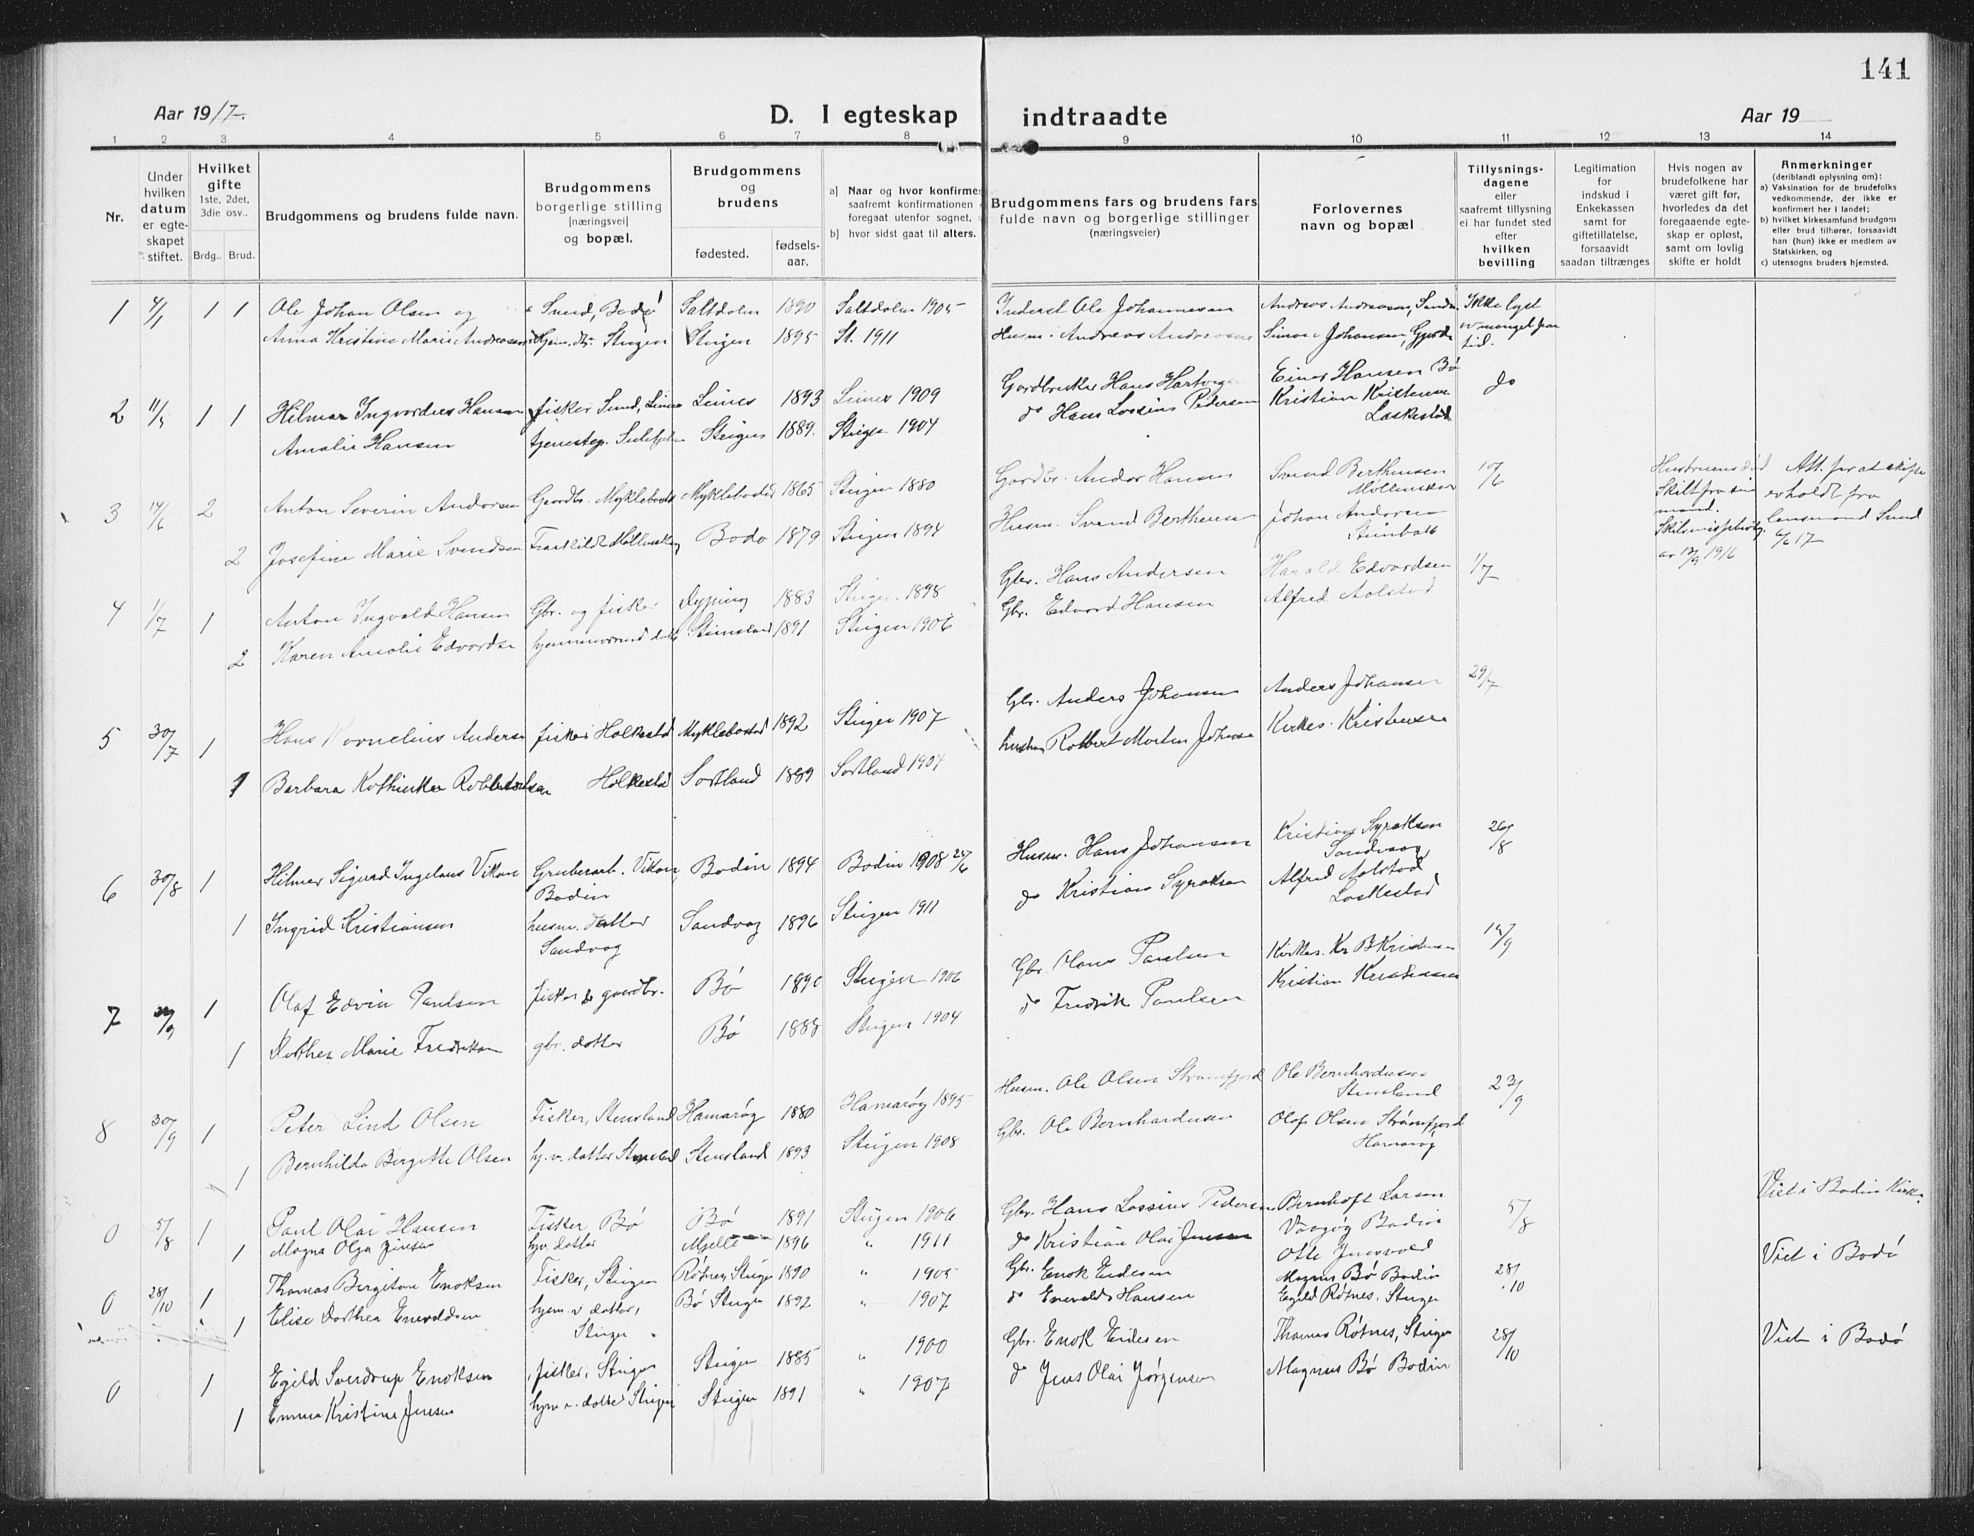 141
Aar 19/7.
D. I egteskap indtraadte
Aar 19
1 2 3 4 5 6 7 8 9 10 11 12 13 14
Nr.
Under hvilken datum er egteskapet stiftet.
Hvilket gifte 1ste, 2det, 3die osv..
Brdg.. Brud.
Brudgommens og brudens fulde navn.
Brudgommens borgerlige stilling (næringsvei) og bopæl.
Brudgommens og brudens
fødested.
fødsels-aar.
a) Naar og hvor konfirme
saafremt konfirmationen
foregaat utenfor sognet,
b) hvor sidst gaat til alters.
Brudgommens fars og brudens fars
fulde navn og borgerlige stillinger
(næringsveier)
Forlovernes
navn og bopæl
Tillysnings-
dagene
eller
saafremt tillysning
ei har fundet sted
efter
hvilken
bevilling
Legitimation
for
indskud i
Enkekassen
samt for
giftetillatelse,
forsaavidt
saadan tiltrænges
Hvis nogen av
brudefolkene har
været gift før,
hvorledes da det
foregaaende egte-
skap er opløst,
samt om lovlig
skifte er holdt
Anmerkninger
(deriblandt oplysning om):
a) Vaksination for de brudefolks
vedkommende, der ikke er
konfirmert her i landet;
b) hvilket kirkesamfund brudgom
eller brud tilhører, forsaavidt
han (hun) ikke er medlem av
Statskirken, og
c) utensogns bruders hjemsted.
1 1 1 Ole Johan Olsen og Sund, Bodø Saltdalen 1890 Saltdalen 1905 Inderst Ole Johannesen Andreas Andreassen, Ikke lyst
Anna Kristine Marie Andreasen Steigen 1895 St. 1911 Husm. Andreas Andreasen Simon Johansen, mangel paa
tid.
2 1 1 Hilmar Ingvardus Hansen fisker Sund, Leines Leines 1893 Leines 1909 Gardbruker Hans Hartvig Einar Hansen Bø do
Amalie Hansen Steigen 1889. Steigen 1904 do Hans Lossius Pedersen Kristian Kristensen
Laskestad
3 17/6 2 Anton Severin Andersen Gaardbr. Myklebostad Myklebostad 1865 Steigen 1880 Gardbr. Ander Hansen Svend Bertheusen 10/6 Att. for at skifte
2 Josefine Marie Svendsen Bodø 1879 Steigen 1894 Husm. Svend Bertheusen Johan Andersen erholdt fra
Skilt fra sin mand. 1916 lensmand Sund 6/6 17
4 1/7 1 Anton Ingvald Hansen Gbr. og fisker 1883 Steigen 1898 Gbr. Hans Andersen Harald Edvardsen 1/7
2 Karen Amalie Edvardse hjemmeværende datt. Steinsland 1891 Steigen 1906 Gbr. Edvard Hansen Alfred Aalstad
5 30/7 1 Hans Kornelius Anderse fisker Holkestad Myklebostad 1892 Steigen 1907 Gbr. Anders Johansen Anders Johansen 29/7
1 Barbara Holkestad Sortland 1889 Sortland 1904 Robbert Morten Johanse Kirkes. Kristensen
6 30/8 1 Hilmer Sigurd Vikan Gruberarb. Vikan Bodin Bodin 1894 Bodin 1908 Husm. Hans Johansen Kristian Syraksen 26/8
Sandvaag
1 Ingrid Kristiansen husm. datter Sandvag Sandvag 1896 Steigen 1911 do Kristian Syraksen Alfred Aalstad
Laskestad
7 1 Olaf Edvin Paulsen fisker & gaardbr. Bø 1890 Steigen 1906 Gbr. Paulsen Kirkes. Kr B Kristensen
1 Dorthea Marie Fredriksen gbr. datter Bø 1888 Steigen 1904 do Fredrik Paulsen Kristian Kristensen
8 30/9 1 Peter Lind Olsen Fisker, Stensland Hamarøy 1880 Hamarøy 1895 Husm. Ole Olsen Strømfjord Ole Bernhardusen 23/9
Stensland
1 Bernhilda Birgitte Olsen hj. v. datter Stensland Stensland 1893 Steigen 1908 Gbr. Ole Bernhardusen Olaf Olsen Strømfjord
Hamarøy
0 5/8 1 Paul Olai Hansen Fisker, Bø Bø 1891 Steigen 1906 Gbr. Hans Lossius Pedersen Bernhoft Larsen 5/8 Viet i Bodin Kirke
1 Magna Olga Jensen hjv datter Mjelle 1896 " 1911 do Kristian Olai Jensen Vaagøy Bodin
0 28/10 1 Thomas Bergiton Enoksen Fisker, Steigen Røtnes, Steigen 1890 " 1905 Gbr. Enok Eidesen Magnus Bø Bodin 28/10 Viet i Bodø
1 Elise Dorthea Enevoldsen hjem. v datter, Steigen Bø Steigen 1892 " 1907 do Enevold Hansen Egild Røtnes, Steigen
0 1 Egild Sverdrup Enoksen fisker, Steigen Steigen 1885 " 1900 Gbr. Enok Eidesen Thomas Røtnes, Steigen 28/10 Viet i Bodø
1 Emma Kristine Jensen hjem v. datter Steigen Steigen 1891 " 1907 do Jens Olai Jørgensen Magnus Bø Bodin